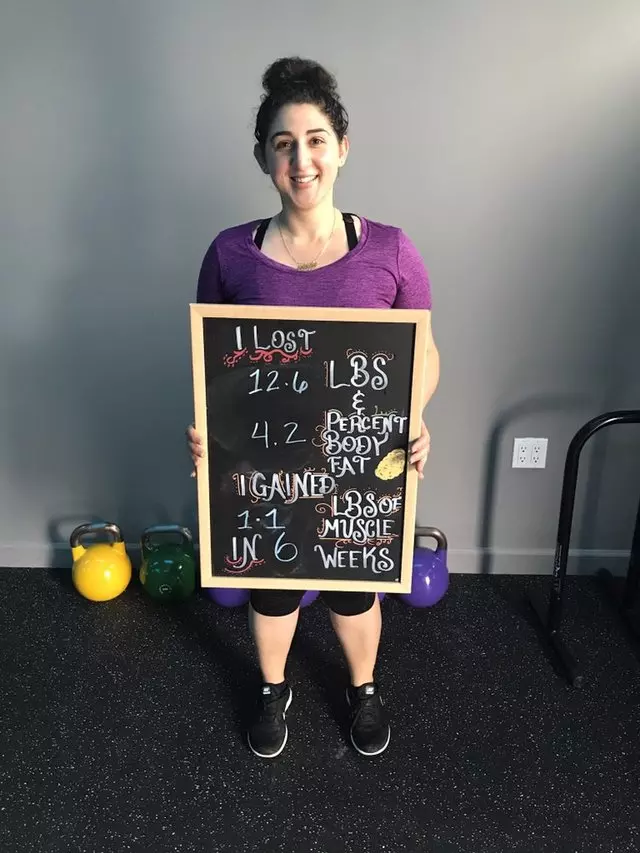 I LOST
12.6 LBS
&
4.2 PERCENT
BODY
FAT
I GAINED
1.1 LBS OF
MUSCLE
IN 6 WEEKS